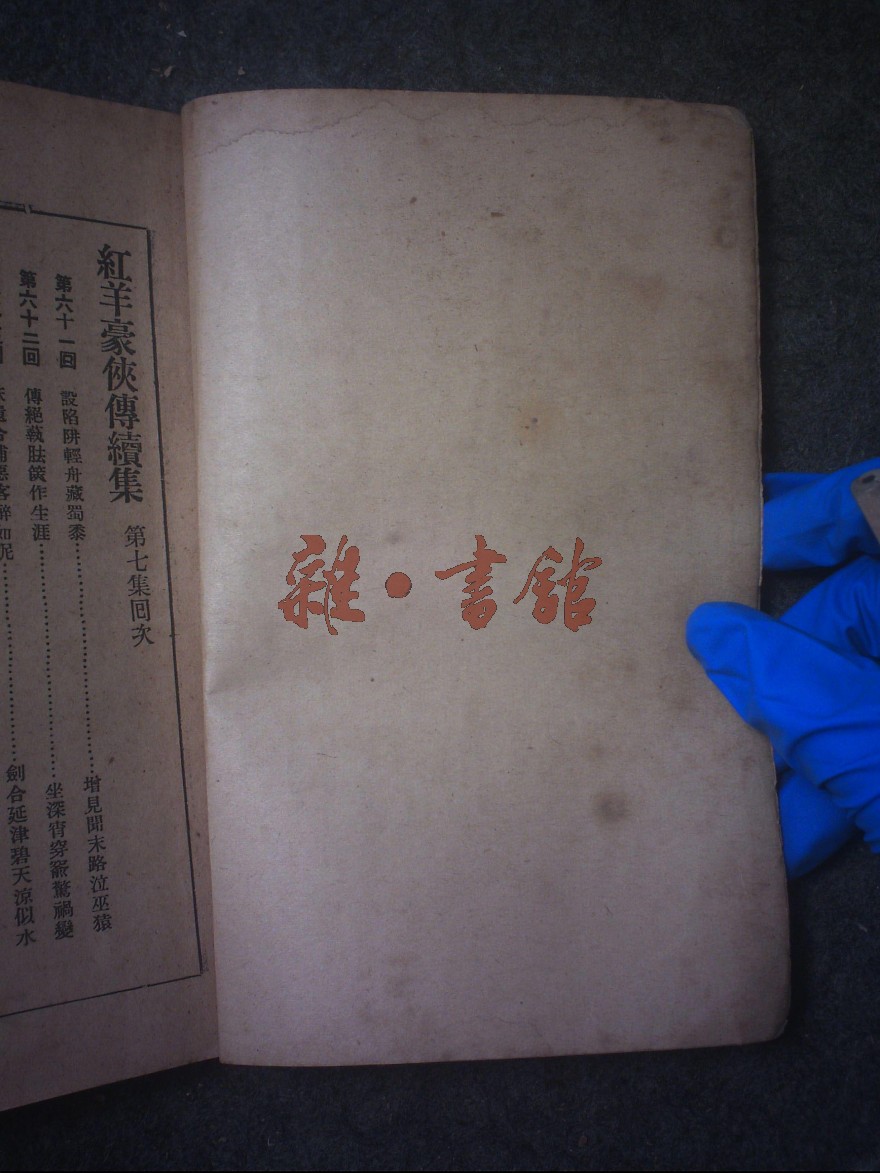 紅羊豪俠傳續集 第七集回次
第六十一回 設陷阱輕舟藏蜀黍……增見聞末路泣巫猿
第六十二回 傳絕藝胠篋作生涯……坐深宵穿窬驚禍變
客醉如泥……劍合延津碧天涼似水
雜·書館